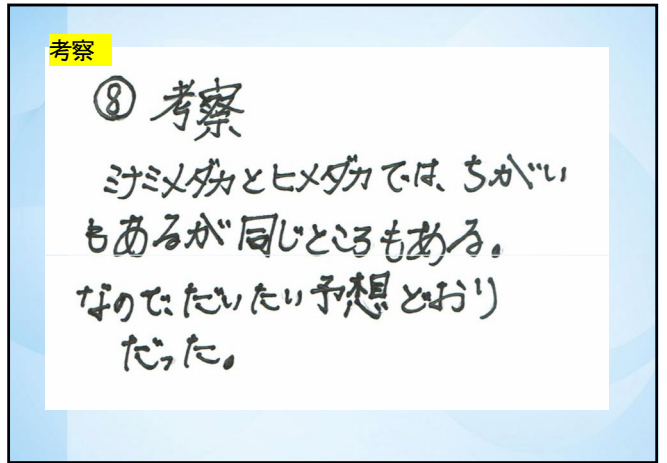 考察
⑧ 考察
ミナミメダカとヒメダカでは、ちがい
もあるが同じところもある。
なので、だいたい予想どおり
だった。